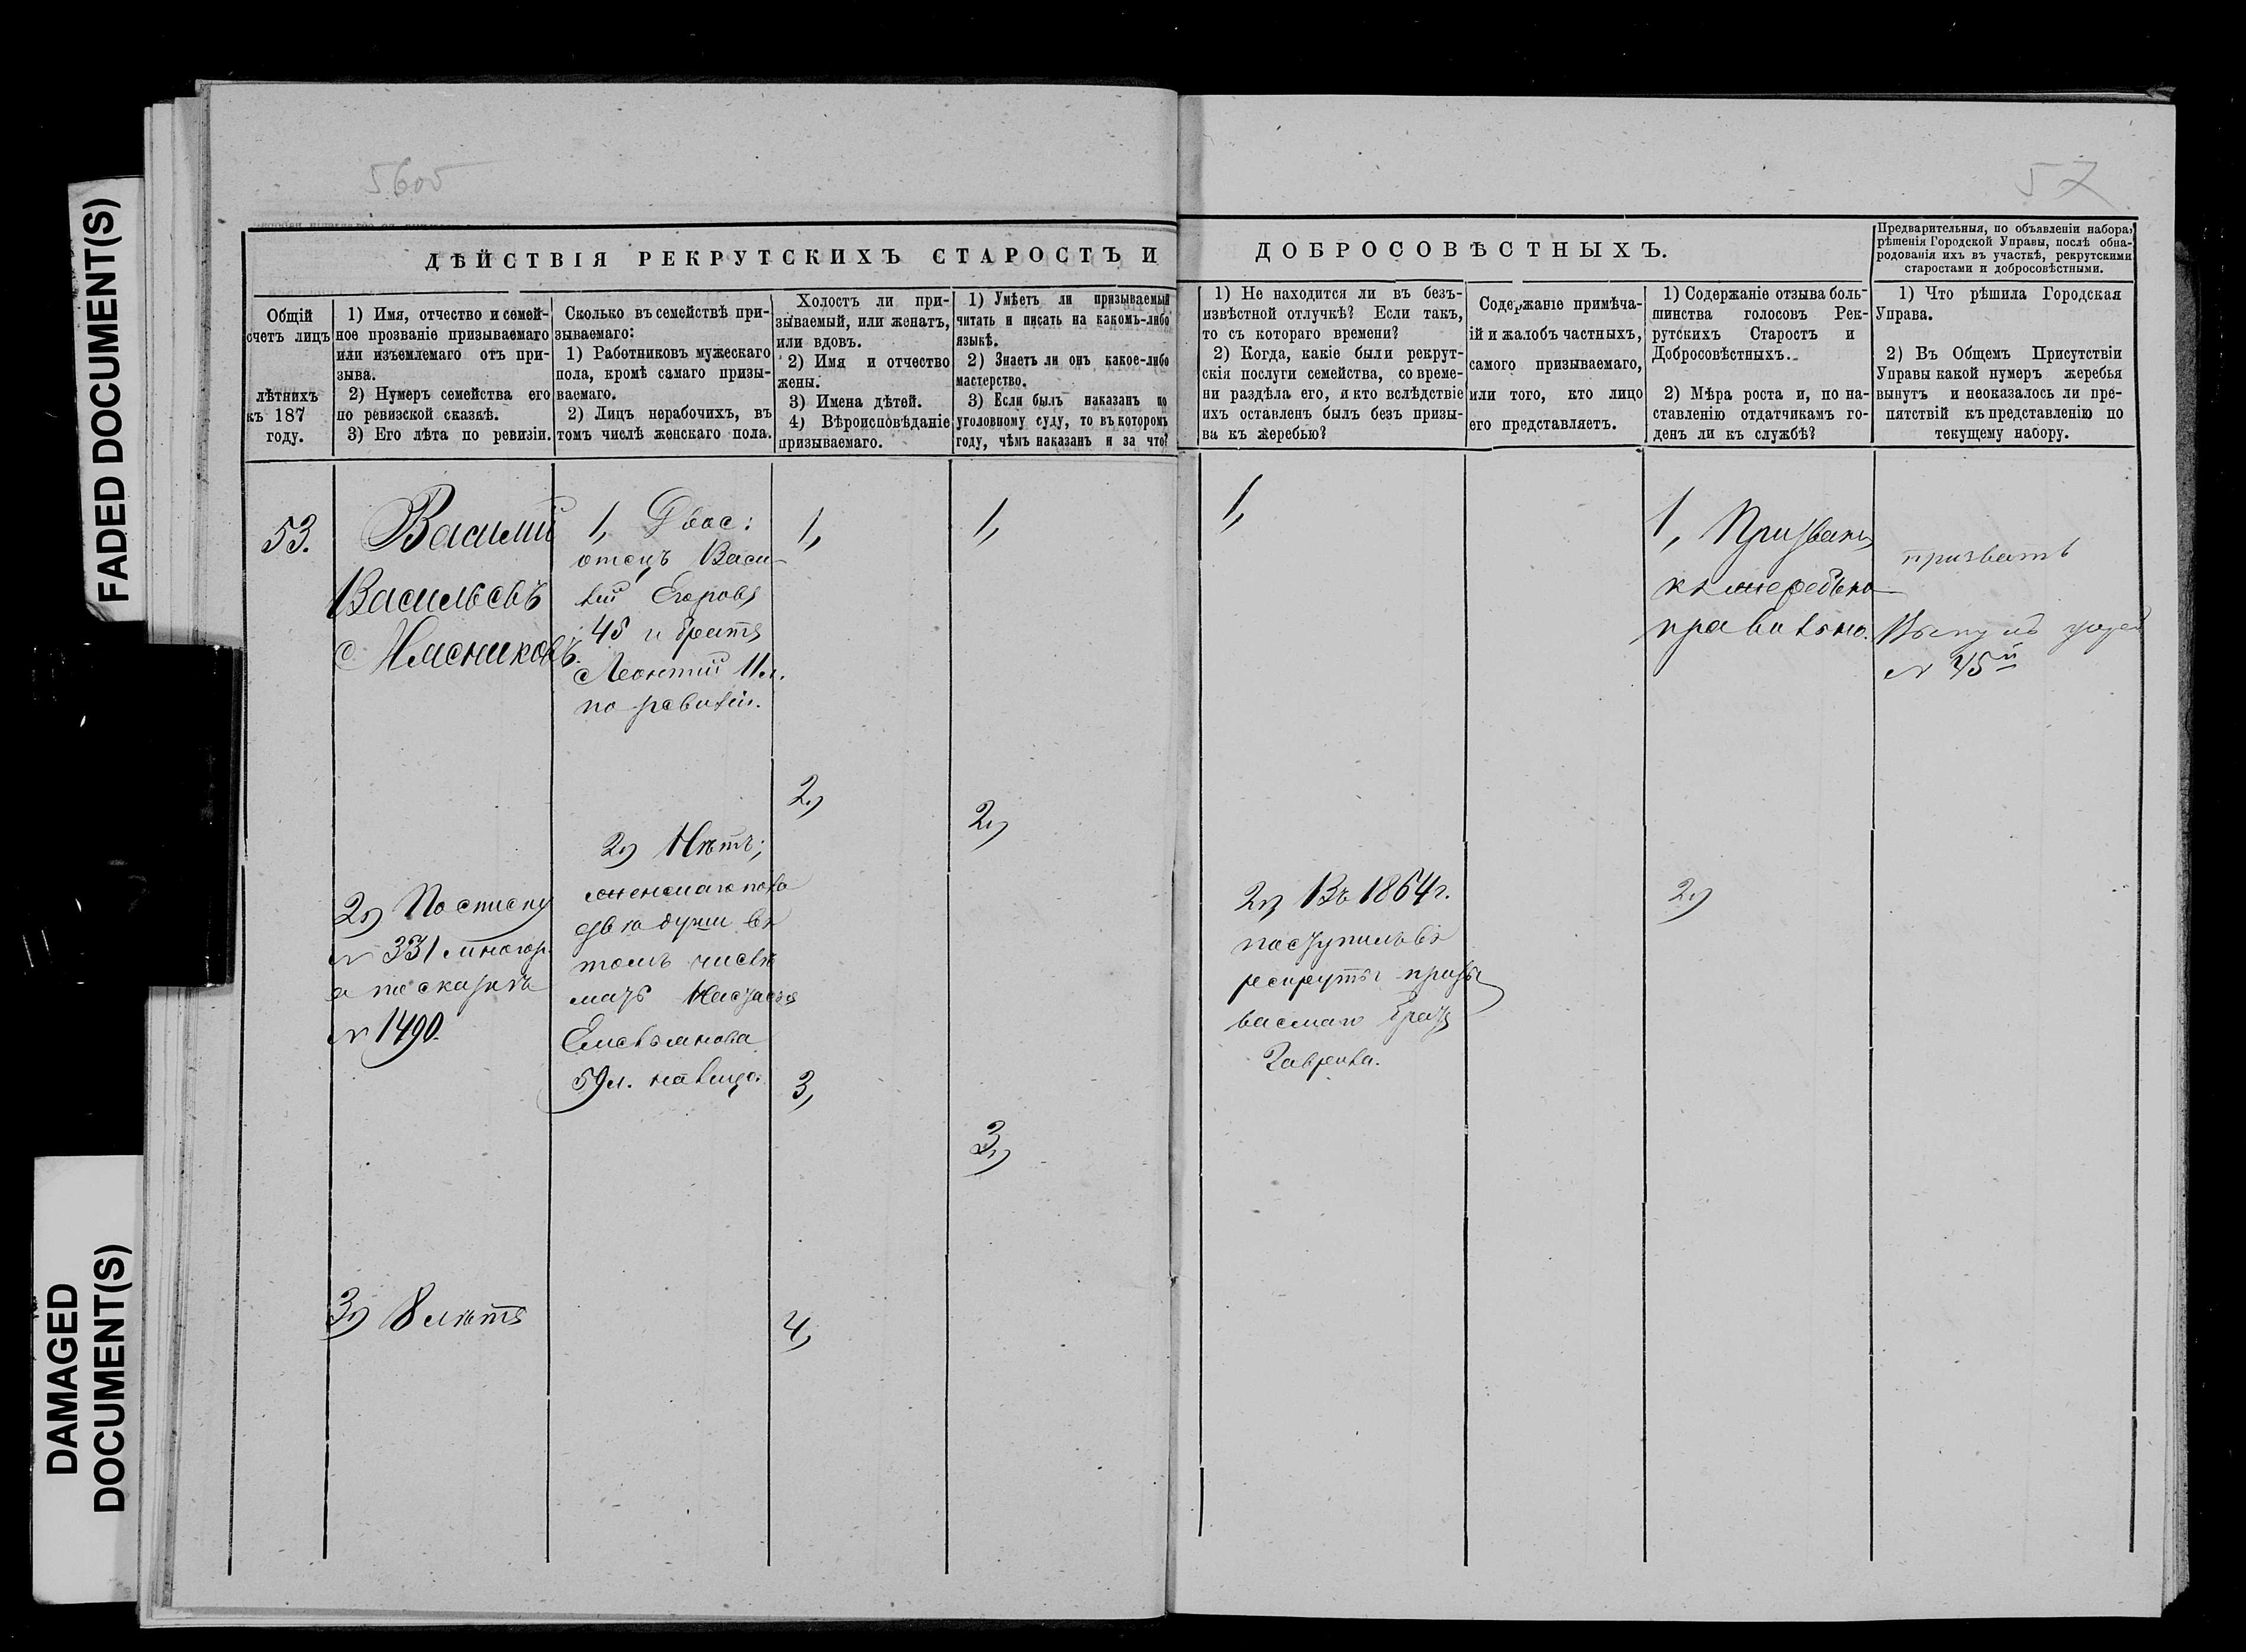 FADED DOCUMENT(S)
DAMAGED
DOCUMENT(S)
57
ДѢЙСТВІЯ РЕКРУТСКИХЪ СТАРОСТЪ И
ДОБРОСОВѢСТНЫХЪ.
Предварительныя, по объявленіи набора,
рѣшенія Городской Управы, послѣ обна-
родованія ихъ въ участкѣ, рекрутскими
старостами и добросовѣстными.
Общій
счетъ лицъ
лѣтнихъ
къ 187
году.
1) Имя, отчество и семей-
ное прозваніе призываемаго
или изъемлемаго отъ при-
зыва.
2) Нумеръ семейства его
по ревизской сказкѣ.
3) Его лѣта по ревизіи.
Сколько въ семействѣ при-
зываемаго:
1) Работниковъ мужескаго
пола, кромѣ самаго призы-
ваемаго.
2) Лицъ нерабочихъ, въ
томъ числѣ женскаго пола.
Холостъ ли при-
зываемый, или женатъ,
или вдовъ.
2) Имя и отчество
жены.
3) Имена дѣтей.
4) Вѣроисповѣданіе
призываемаго.
1) Умѣетъ ли призываемый
читать и писать на какомъ-либо
языкѣ.
2) Знаетъ ли онъ какое-либо
мастерство.
3) Если былъ наказанъ по
уголовному суду, то въ которомъ
году, чѣмъ наказанъ и за что?
1) Не находится ли въ безъ-
извѣстной отлучкѣ? Если такъ,
то съ котораго времени?
2) Когда, какіе были рекрут-
скія послуги семейства, со време-
ни раздѣла его, и кто вслѣдствіе
ихъ оставленъ былъ безъ призы-
ва къ жеребью?
Содержаніе примѣча-
ій и жалобъ частныхъ,
самого призываемаго,
или того, кто лицо
его представляетъ.
1) Содержаніе отзыва боль-
шинства голосовъ Рек-
рутскихъ Старостъ и
Добросовѣстныхъ.
2) Мѣра роста и, по на-
ставленію отдатчикамъ го-
денъ ли къ службѣ?
1) Что рѣшила Городская
Управа.
2) Въ Общемъ Присутствіи
Управы какой нумеръ жеребья
вынутъ и неоказалось ли пре-
пятствій къ представленію по
текущему набору.
53.
Василій
Васильевъ
Мясниковъ.
2) По списку
№ 331
а по сказкѣ
№ 1490.
3) 8 лѣтъ
1, Двое:
отецъ Васи-
лій Егоровъ
45 и братъ
Леонтій 11 л.
по ревизіи.
2) Нѣтъ;
женскаго пола
двѣ души въ
томъ числѣ
мать Настасья
Емельянова
59 л. на лицо.
1,
2)
3,
4,
1,
2)
3)
1,
2) Въ 1864 г.
поступилъ въ
рекруты призы
ваемаго братъ
Гаврила.
1, Призванъ
къ жеребью
правильно.
2)
призвать
№ 45й